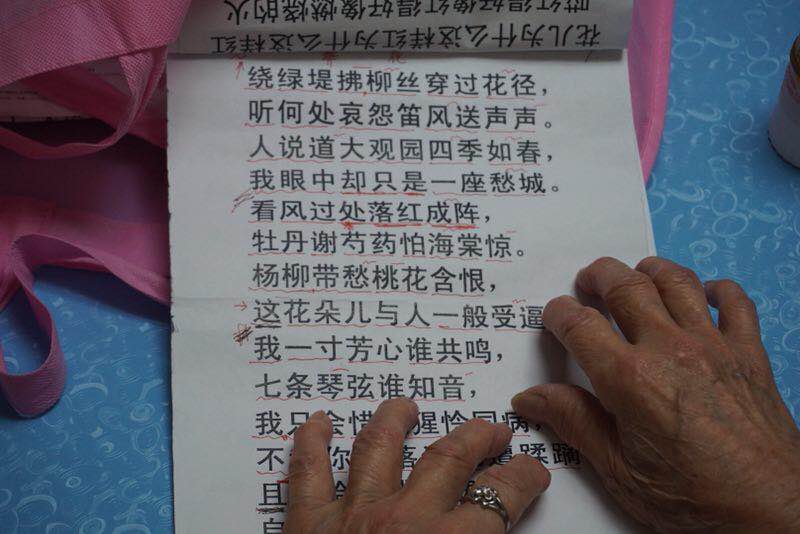 花儿为什么这样红为什么这样红
哎红得好像红得好像燃烧的火
绕绿堤拂柳丝穿过花径，
听何处哀怨笛风送声声。
人说道大观园四季如春，
我眼中却只是一座愁城。
看风过处落红成阵，
牡丹谢芍药怕海棠惊。
杨柳带愁桃花含恨，
这花朵儿与人一般受逼
我一寸芳心谁共鸣，
七条琴弦谁知音，
我只会惜猩怜同病，
不你落遭蹂躏
且